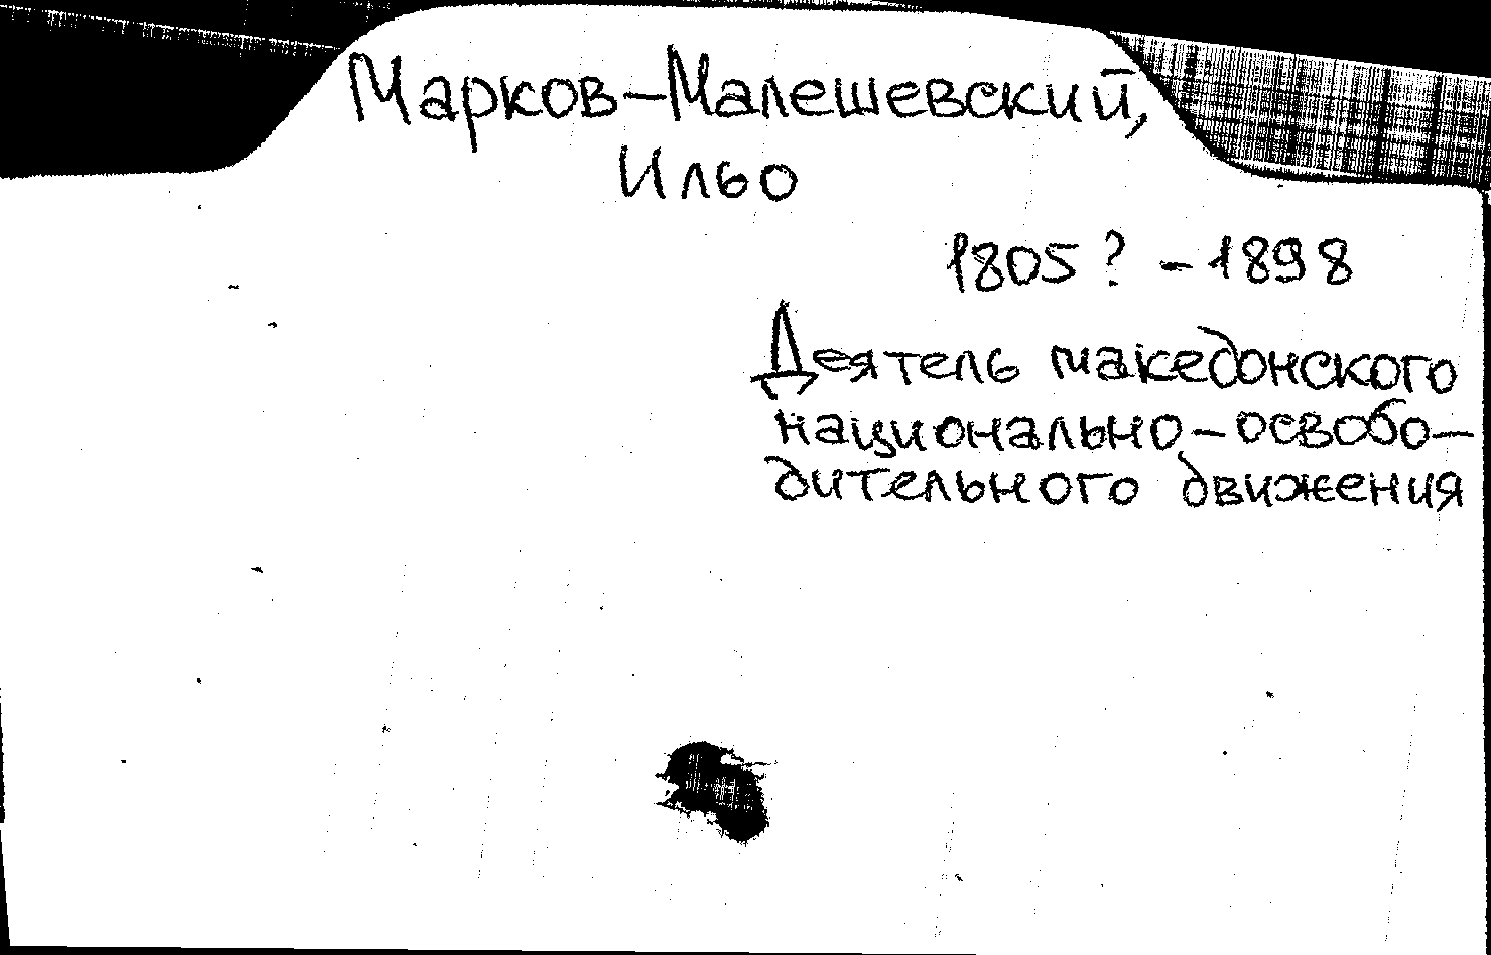 Марков-Малешевский,
Ильо
1805? - 1898
Деятель македонского
национально-освобо-
дительного движения